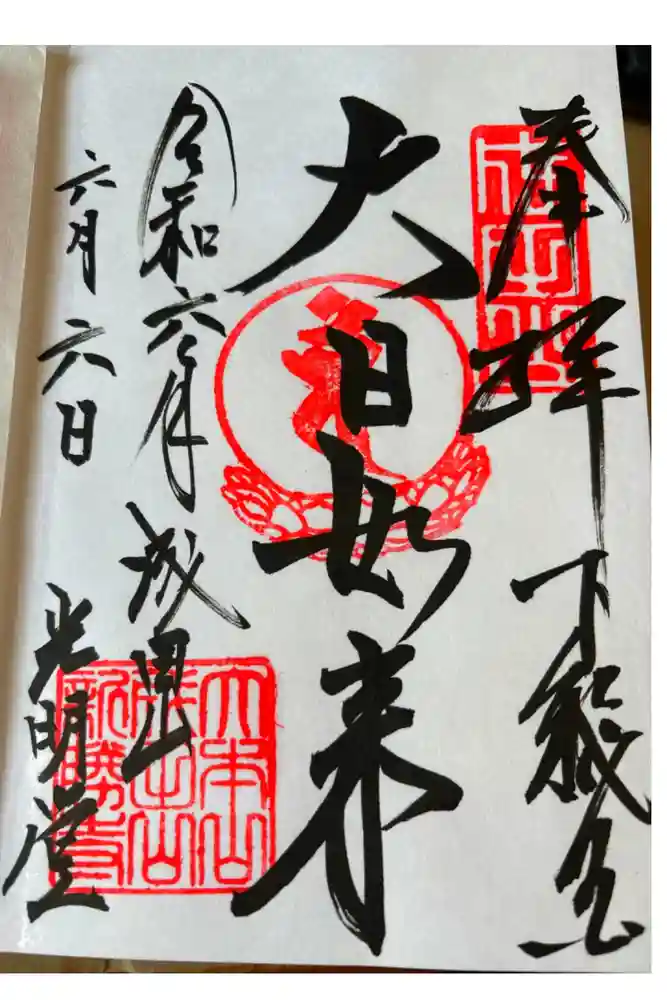 奉拝 下総国
成田山
大日如来
令和六年 成田山
六月六日 光明堂
大本山
成田山
新勝寺